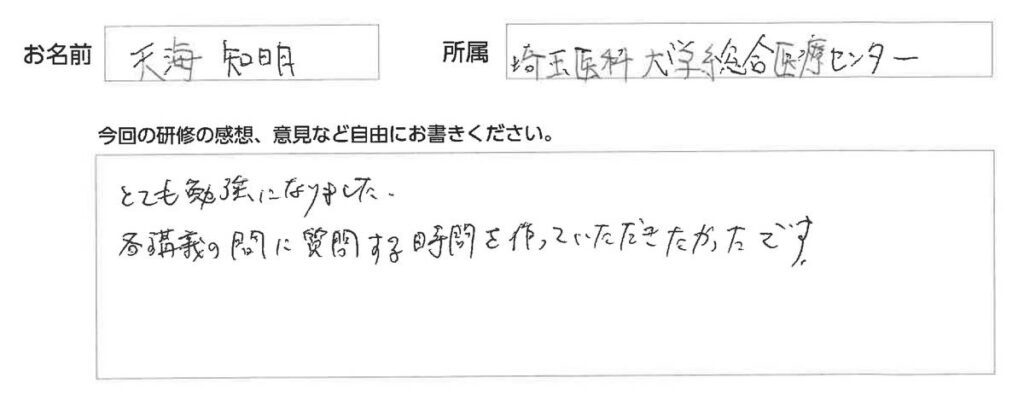 お名前 天海 知明 所属 埼玉医科大学総合医療センター
今回の研修の感想、意見など自由にお書きください。
とても勉強になりました.
各講義の間に質問する時間を作っていただきたかったです.